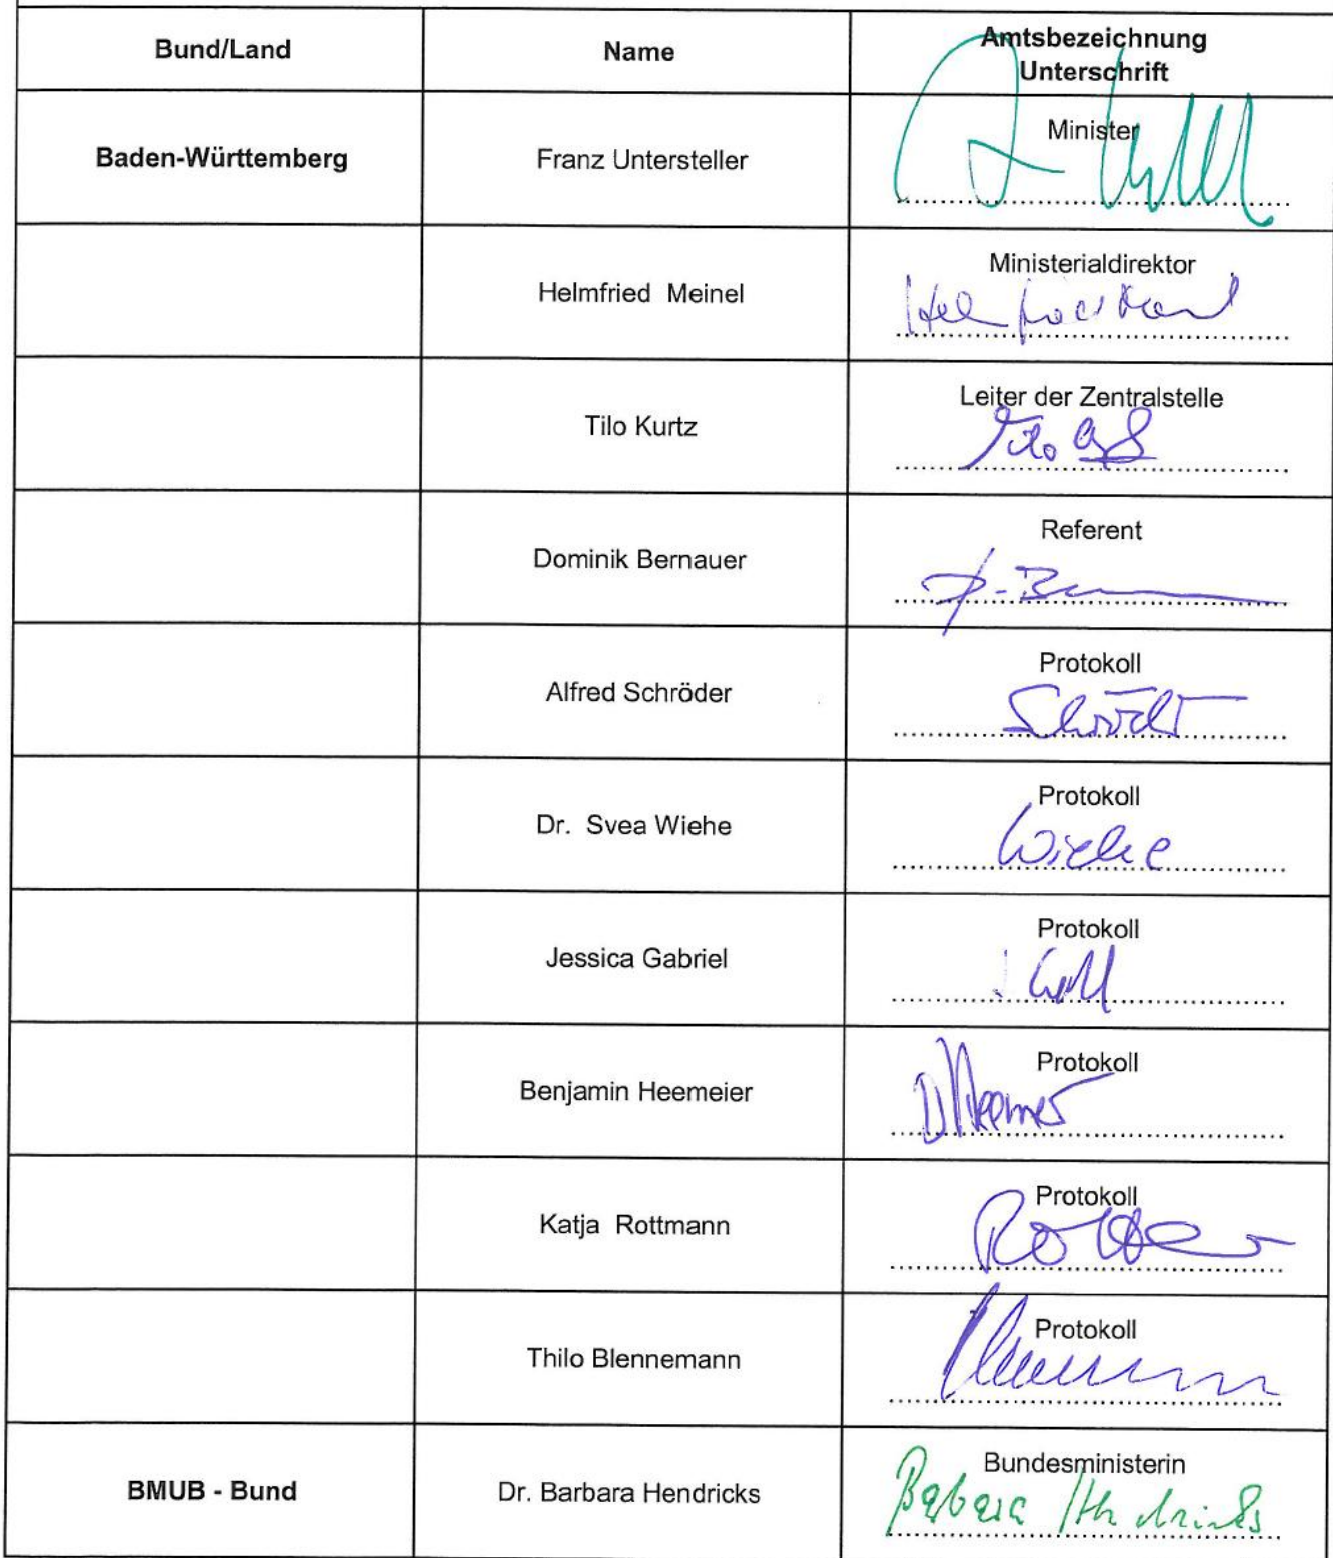 Bund/Land Name Amtsbezeichnung
Unterschrift
Baden-Württemberg Franz Untersteller Minister
Helmfried Meinel Ministerialdirektor
Tilo Kurtz Leiter der Zentralstelle
Tilo
Dominik Bernauer Referent
Alfred Schröder Protokoll
Dr. Svea Wiehe Protokoll
Wiehe
Jessica Gabriel Protokoll
Benjamin Heemeier Protokoll
Katja Rottmann Protokoll
Thilo Blennemann Protokoll
BMUB - Bund Dr. Barbara Hendricks Bundesministerin
Barbara Hendricks